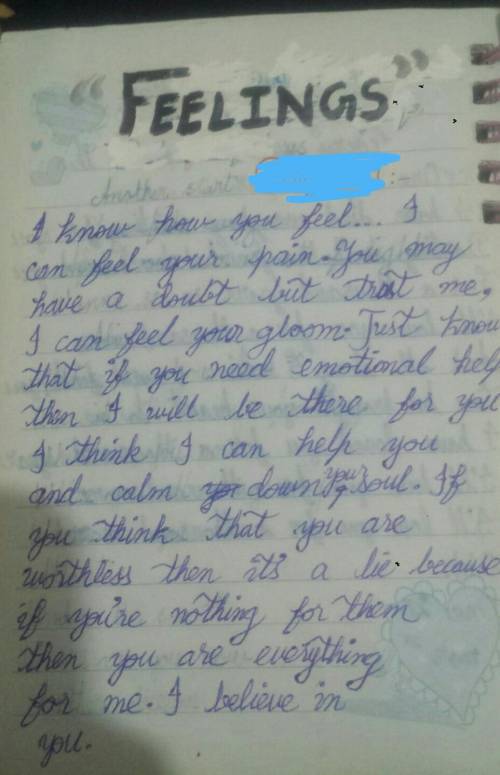 “FEELINGS”
Another start
I know how you feel... I
can feel your pain. You may
have a doubt but trust me,
I can feel your gloom. Just know
that if you need emotional help
then I will be there for you
I think I can help you
and calm down your soul. If
you think that you are
worthless then it's a lie because
if you're nothing for them
then you are everything
for me. I believe in
you.